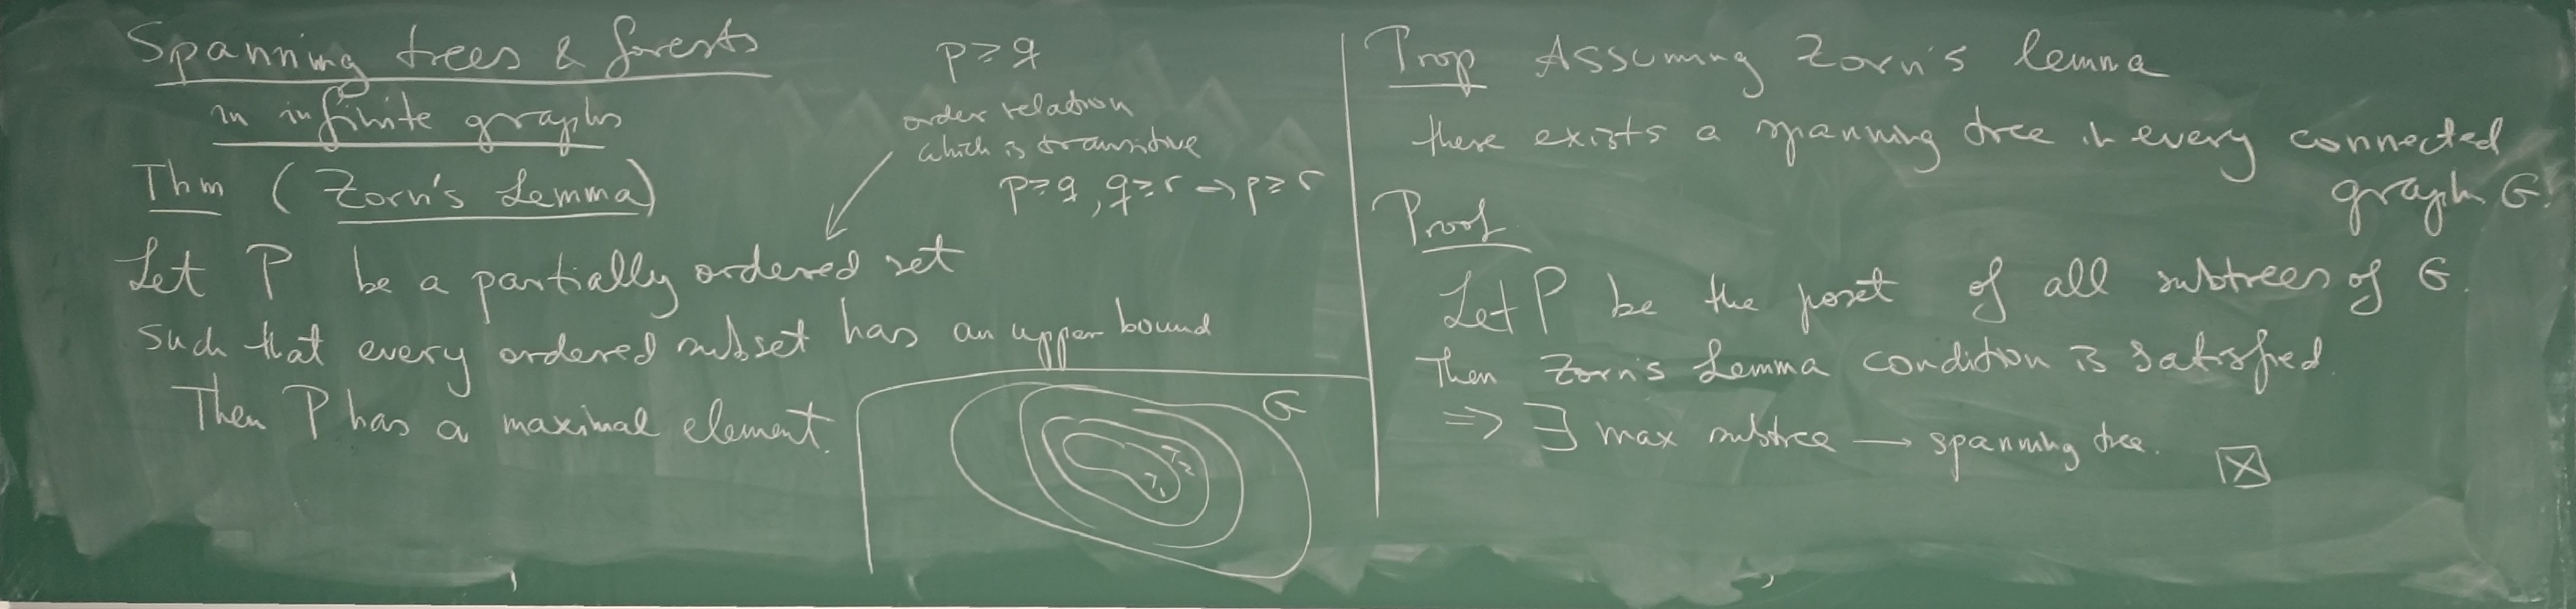 Spanning trees & forests
in infinite graphs
Thm (Zorn's Lemma)
p ≥ q
order relation
which is transitive
p ≥ q, q ≥ r → p ≥ r
Let P be a partially ordered set
such that every ordered subset has an upper bound
Then P has a maximal element.
G
T₂
T₁
Prop Assuming Zorn's lemma
there exists a spanning tree in every connected
graph G.
Proof
Let P be the poset of all subtrees of G.
Then Zorn's Lemma condition is satisfied.
⇒ ∃ max subtree → spanning tree. ☒